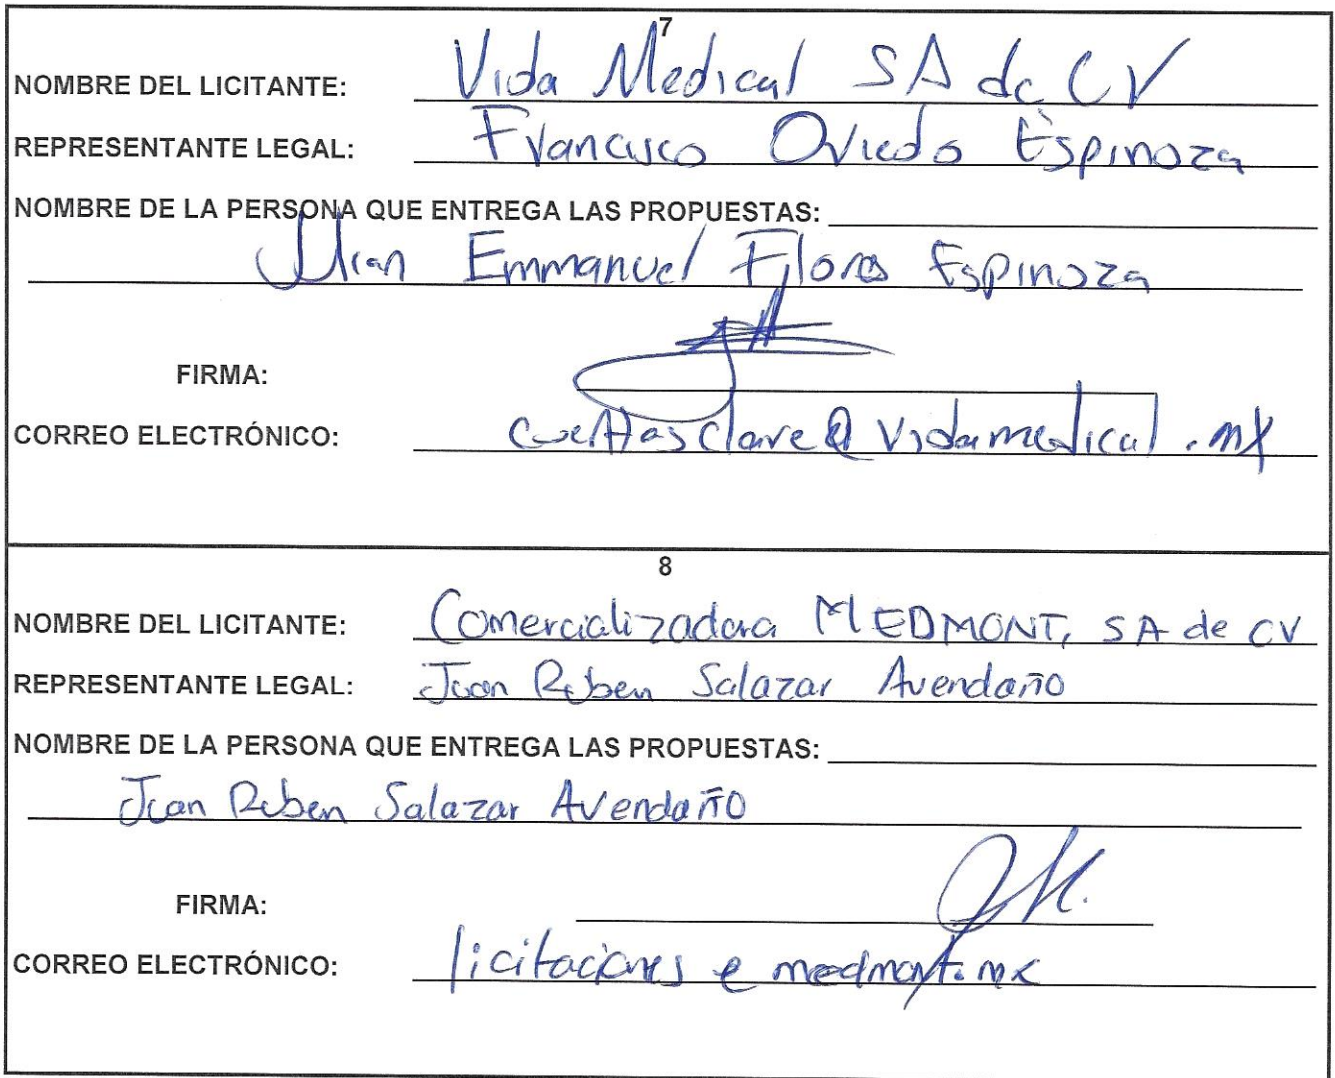 7
NOMBRE DEL LICITANTE: Vida Medical SA de CV
REPRESENTANTE LEGAL: Francisco Oviedo Espinoza
NOMBRE DE LA PERSONA QUE ENTREGA LAS PROPUESTAS:
Emmanuel Flores Espinoza
FIRMA:
CORREO ELECTRÓNICO: cuentasclave@vidamedical.mx
8
NOMBRE DEL LICITANTE: Comercializadora MEDMONT, SA de CV
REPRESENTANTE LEGAL: Juan Ruben Salazar Avendaño
NOMBRE DE LA PERSONA QUE ENTREGA LAS PROPUESTAS:
Juan Ruben Salazar Avendaño
FIRMA:
CORREO ELECTRÓNICO: licitaciones e medmont.mx